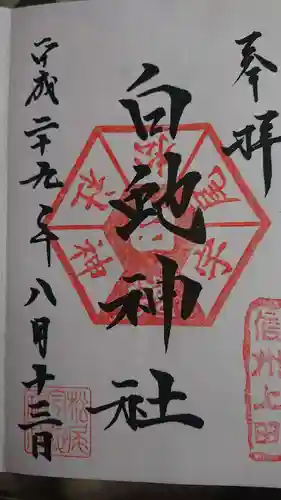 奉拝
白地神社
平成二十九年八月十三日
信州上田